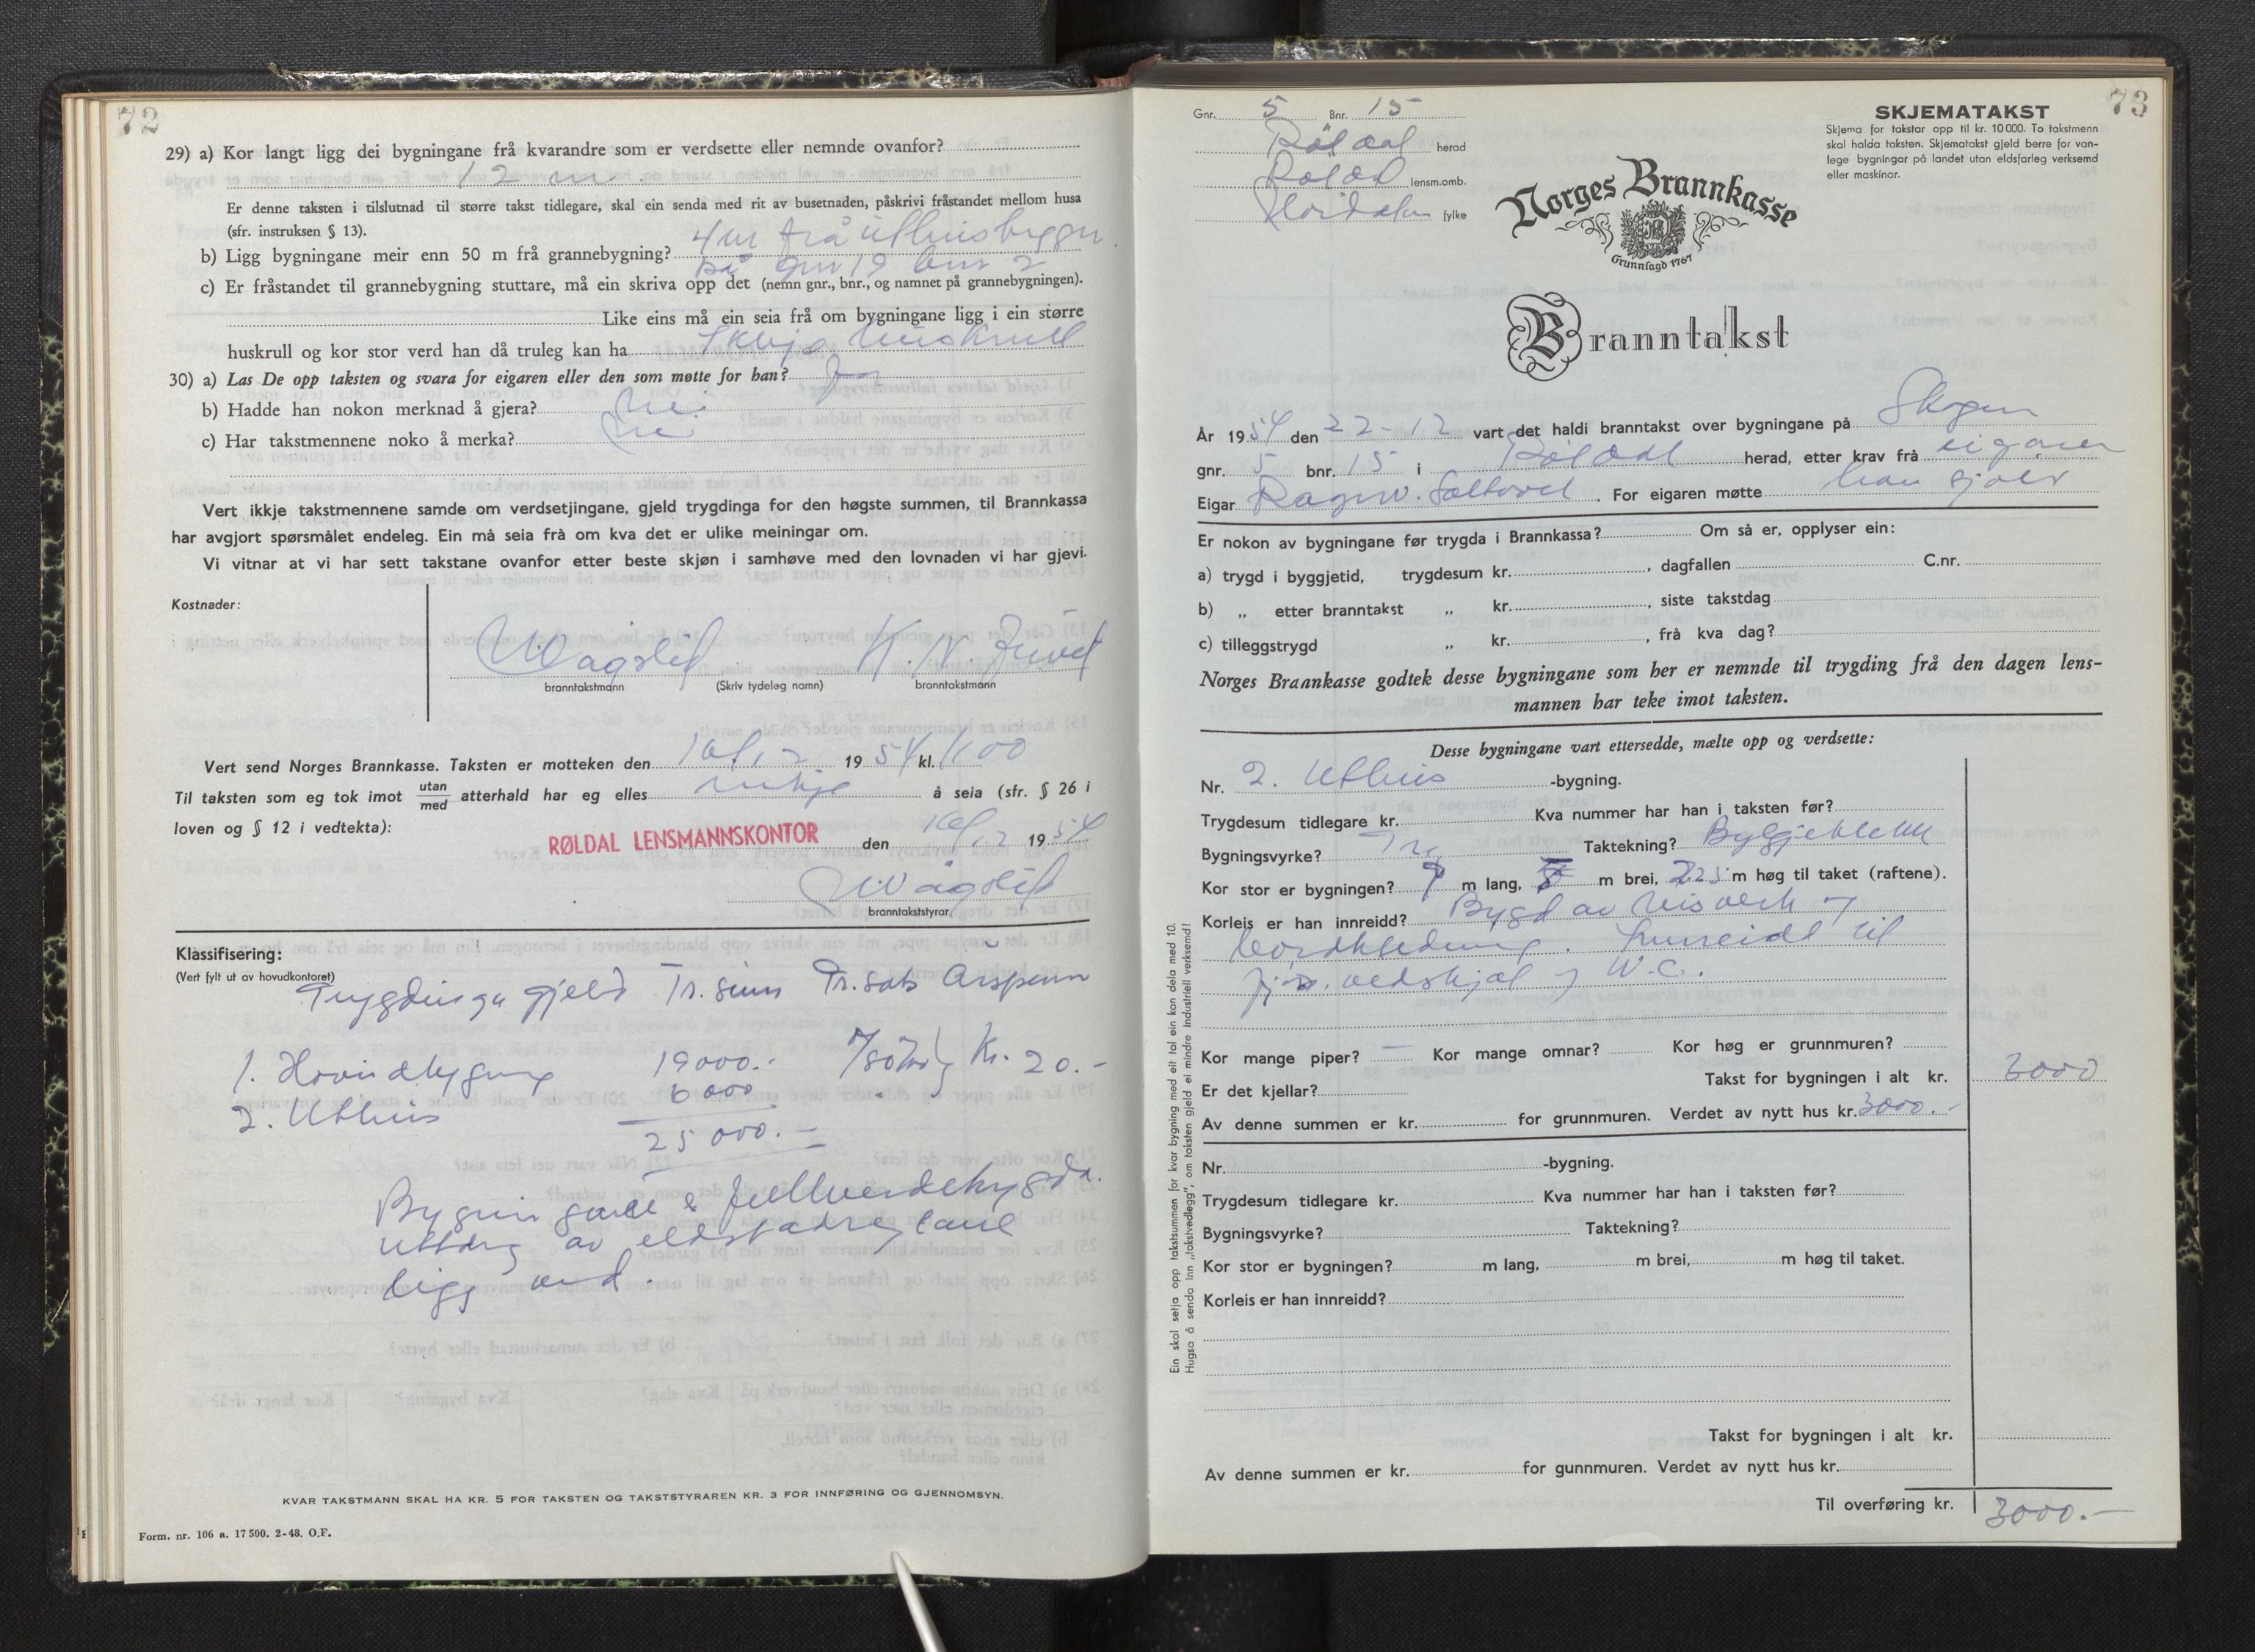 72
29) a) Kor langt ligg dei bygningane frå kvarandre som er verdsette eller nemnde ovanfor?
12 m.
Er denne taksten i tilslutnad til større takst tidlegare, skal ein senda med rit av busetnaden, påskrivi fråstandet mellom husa
(sfr. instruksen § 13).
b) Ligg bygningane meir enn 50 m frå grannebygning? 4 m frå uthusbygn.
på gnr 19 bnr 2
c) Er fråstandet til grannebygning stuttare, må ein skriva opp det (nemn gnr., bnr., og namnet på grannebygningen).
Like eins må ein seia frå om bygningane ligg i ein større
huskrull og kor stor verd han då truleg kan ha Ikkje huskrull
30) a) Las De opp taksten og svara for eigaren eller den som møtte for han? Ja
b) Hadde han nokon merknad å gjera? Nei
c) Har takstmennene noko å merka? Nei
Vert ikkje takstmennene samde om verdsetjingane, gjeld trygdinga for den høgste summen, til Brannkassa
har avgjort spørsmålet endeleg. Ein må seia frà om kva det er ulike meiningar om.
Vi vitnar at vi har sett takstane ovanfor etter beste skjøn i samhøve med den lovnaden vi har gjevi.
Kostnader:
Wågslid K. N.
branntakstmann (Skriv tydeleg namn) branntakstmann
Vert send Norges Brannkasse. Taksten er motteken den 16/12 1954 kl. 11 00
Til taksten som eg tok imot utan/med atterhald har eg elles inkje å seia (sfr. § 26 i
loven og § 12 i vedtekta):
RØLDAL LENSMANNSKONTOR den 16/12 1954
Wågslid
branntakststyrar
Klassifisering:
(Vert fylt ut av hovudkontoret)
Trygdinga gjeld Tr. sum Pr. sats Årspr.
1. Hovudbygning 19000.- Kr. 20.-
2. Uthus 6000
25000.-
Bygningane e fullverdetrygda.
Utdrag av eldstadregland
ligg ved.
KVAR TAKSTMANN SKAL HA KR. 5 FOR TAKSTEN OG TAKSTSTYRAREN KR. 3 FOR INNFØRING OG GJENNOMSYN.
Form. nr. 106 a. 17500. 2-48. O.F.
73
Gnr. 5 Bnr. 15
Röldal herad
Röldal lensm.omb.
Hordaland fylke
SKJEMATAKST
Skjema for takstar opp til kr. 10 000. To takstmenn
skal halda taksten. Skjematakst gjeld berre for van-
lege bygningar på landet utan eldsfarleg verksemd
eller maskinar.
Norges Brannkasse
Grunnlagd 1767
Branntakst
År 1954 den 22-12 vart det haldi branntakst over bygningane på Skogen
gnr. 5 bnr. 15 i Röldal herad, etter krav frå eigaren
Eigar Ragnv. Saltvold. For eigaren møtte han sjølv
Er nokon av bygningane før trygda i Brannkassa? Om så er, opplyser ein:
a) trygd i byggjetid, trygdesum kr. , dagfallen C.nr.
b) „ etter branntakst „ kr. , siste takstdag
c) tilleggstrygd „ kr. , frå kva dag?
Norges Brannkasse godtek desse bygningane som her er nemnde til trygding frå den dagen lens-
mannen har teke imot taksten.
Desse bygningane vart ettersedde, mælte opp og verdsette:
Nr. 2. Uthus -bygning.
Trygdesum tidlegare kr. Kva nummer har han i taksten før?
Bygningsvyrke? Tre Taktekning? Bylgjeblekk
Kor stor er bygningen? 7 m lang, 5 m brei, 2,25 m høg til taket (raftene).
Korleis er han innreidd? Bygd av bisverk og
bordkledning. Innreidt til
vedskjol og W.C.
Kor mange piper? — Kor mange omnar? Kor høg er grunnmuren?
Er det kjellar? Takst for bygningen i alt kr. 3000
Av denne summen er kr. for grunnmuren. Verdet av nytt hus kr. 3000.-
Nr. -bygning.
Trygdesum tidlegare kr. Kva nummer har han i taksten før?
Bygningsvyrke? Taktekning?
Kor stor er bygningen? m lang, m brei, m høg til taket.
Korleis er han innreidd?
Takst for bygningen i alt kr.
Av denne summen er kr. for gunnmuren. Verdet av nytt hus kr.
Til overføring kr. 3000.-
Ein skal setja opp takstsummen for kvar bygning med eit tal ein kan dela med 10.
Hugsa å senda inn „takstvedlegg”, om taksten gjeld ei mindre industriell verksemd!